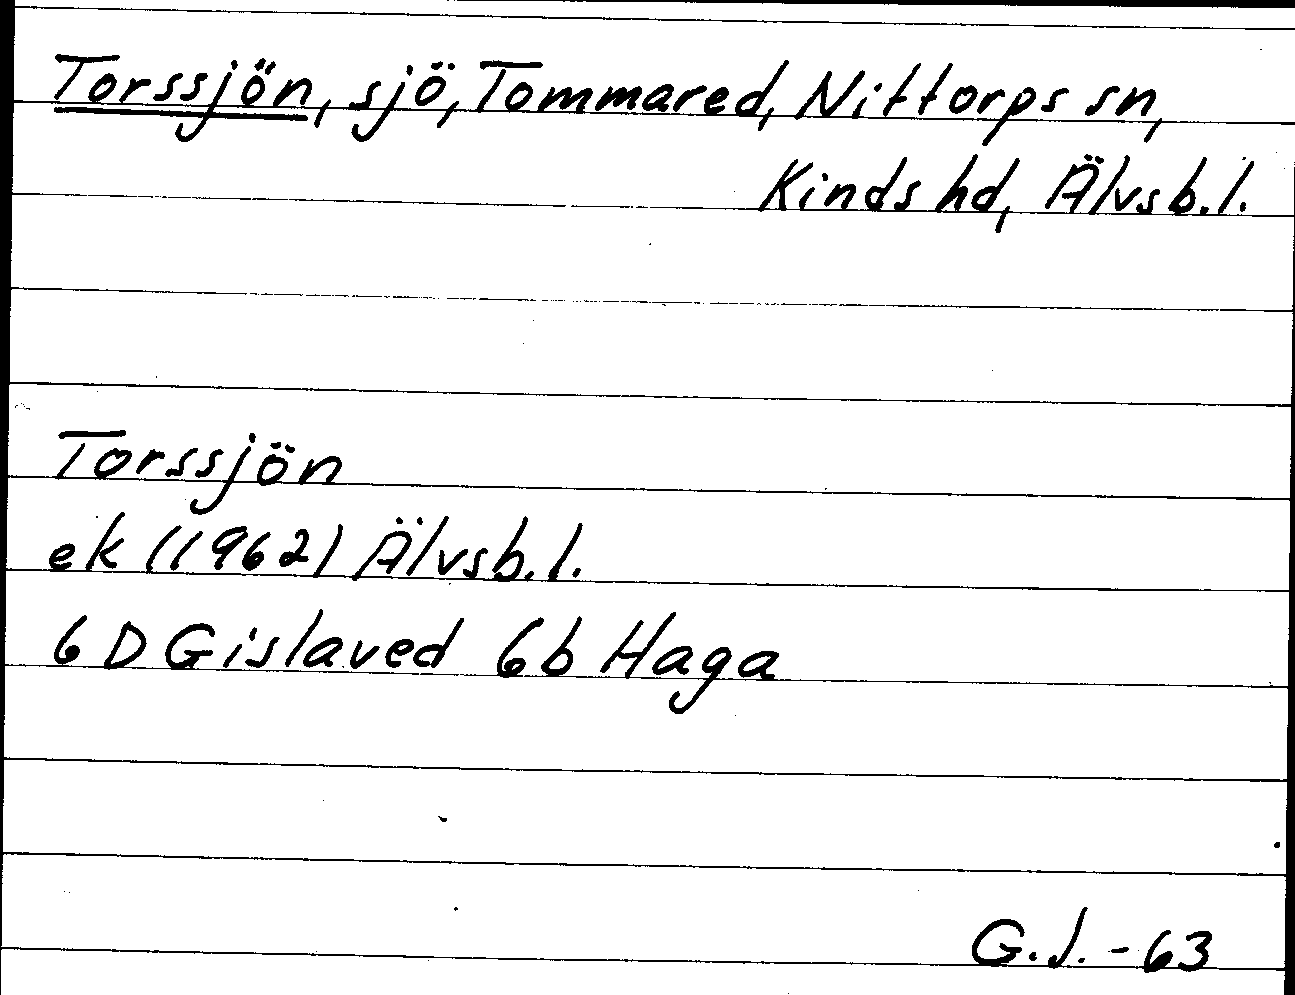 Torssjön, sjö, Tommared, Nittorps sn,
Kinds hd, Älvsb.l.
Torssjön
ek (1962) Älvsb.l.
6 D Gislaved 6b Haga
G.J. -63